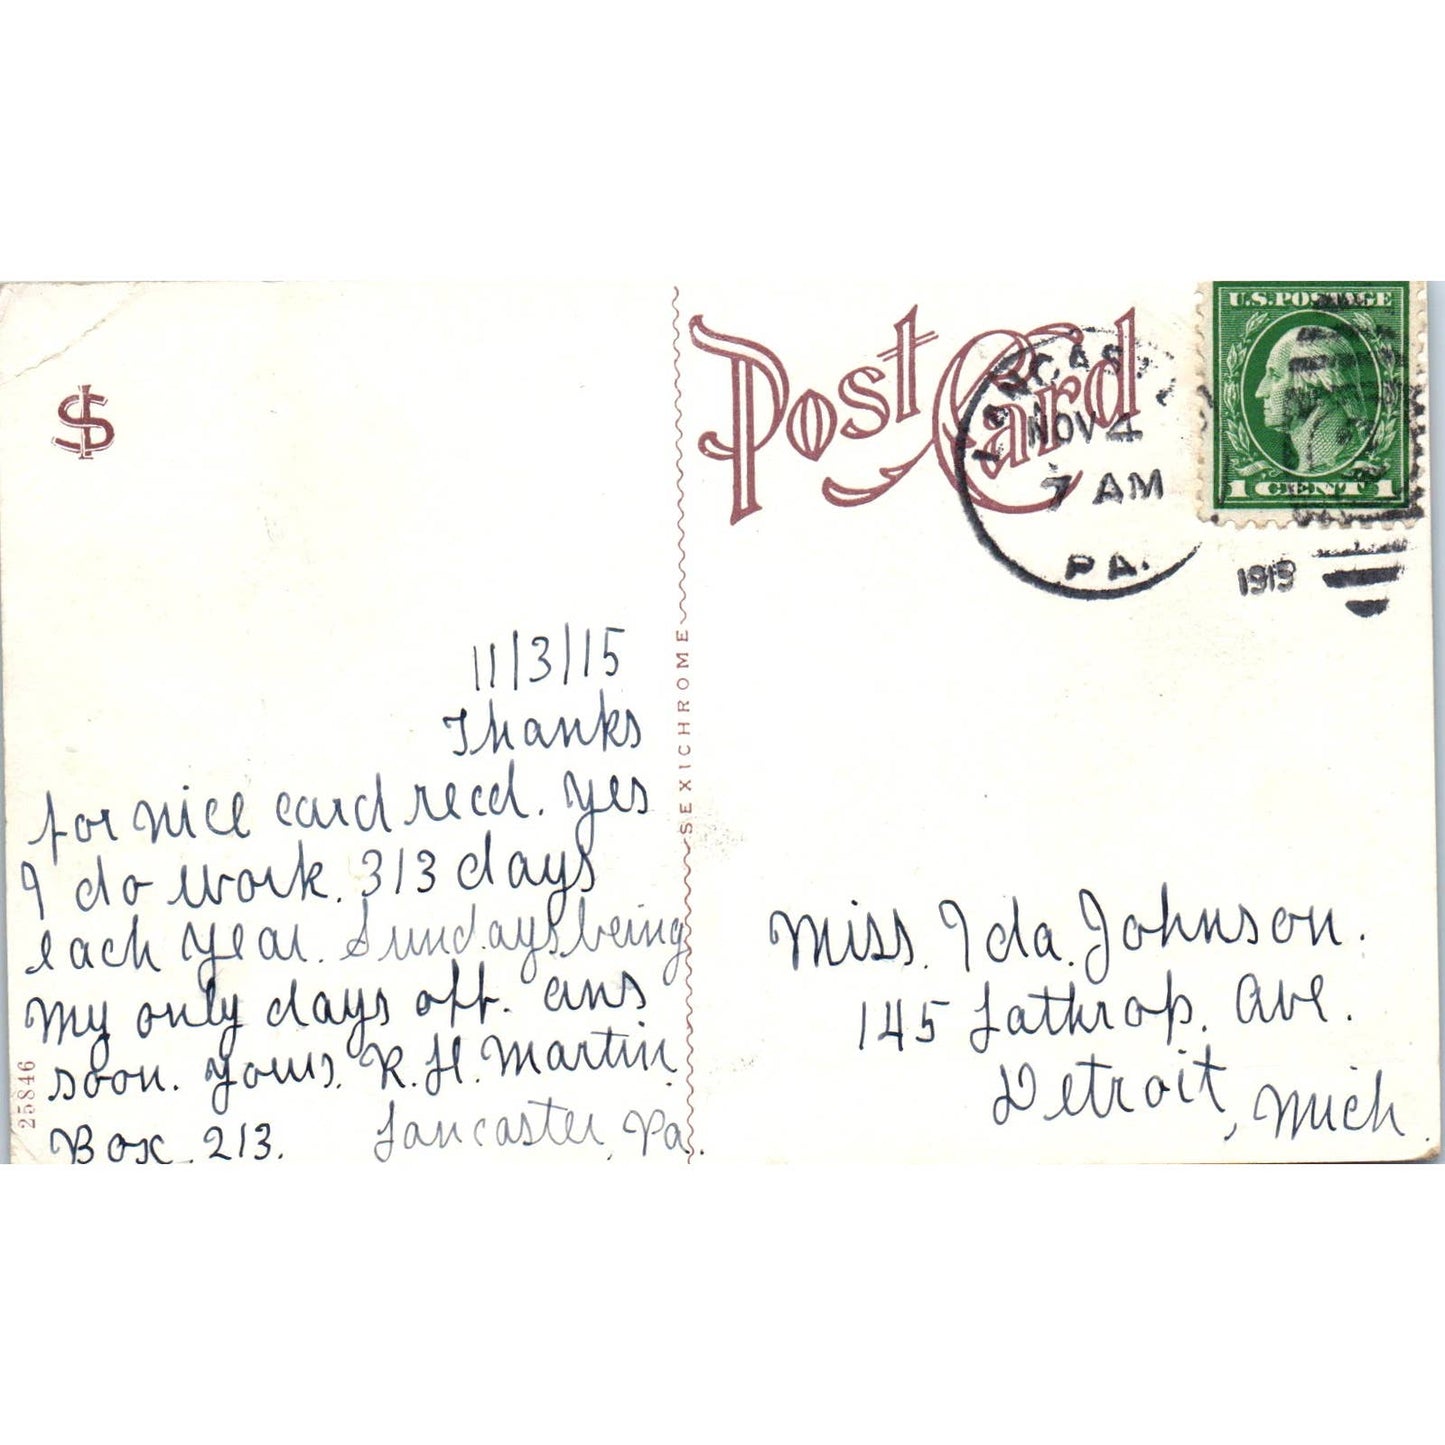 Post Card
LANCASTE
NOV 4
7 AM
PA.
1915
U.S. POSTAGE
1 CENT 1
SEXICHROME
25846
11/3/15
Thanks
for nice card recd. Yes
I do work. 313 days
each year. Sundays being
my only days off. ans
soon. Yours. R. H. Martin.
Box 213. Lancaster, Pa.
Miss. Ida. Johnson.
145 Lathrop. Ave.
Detroit, Mich.